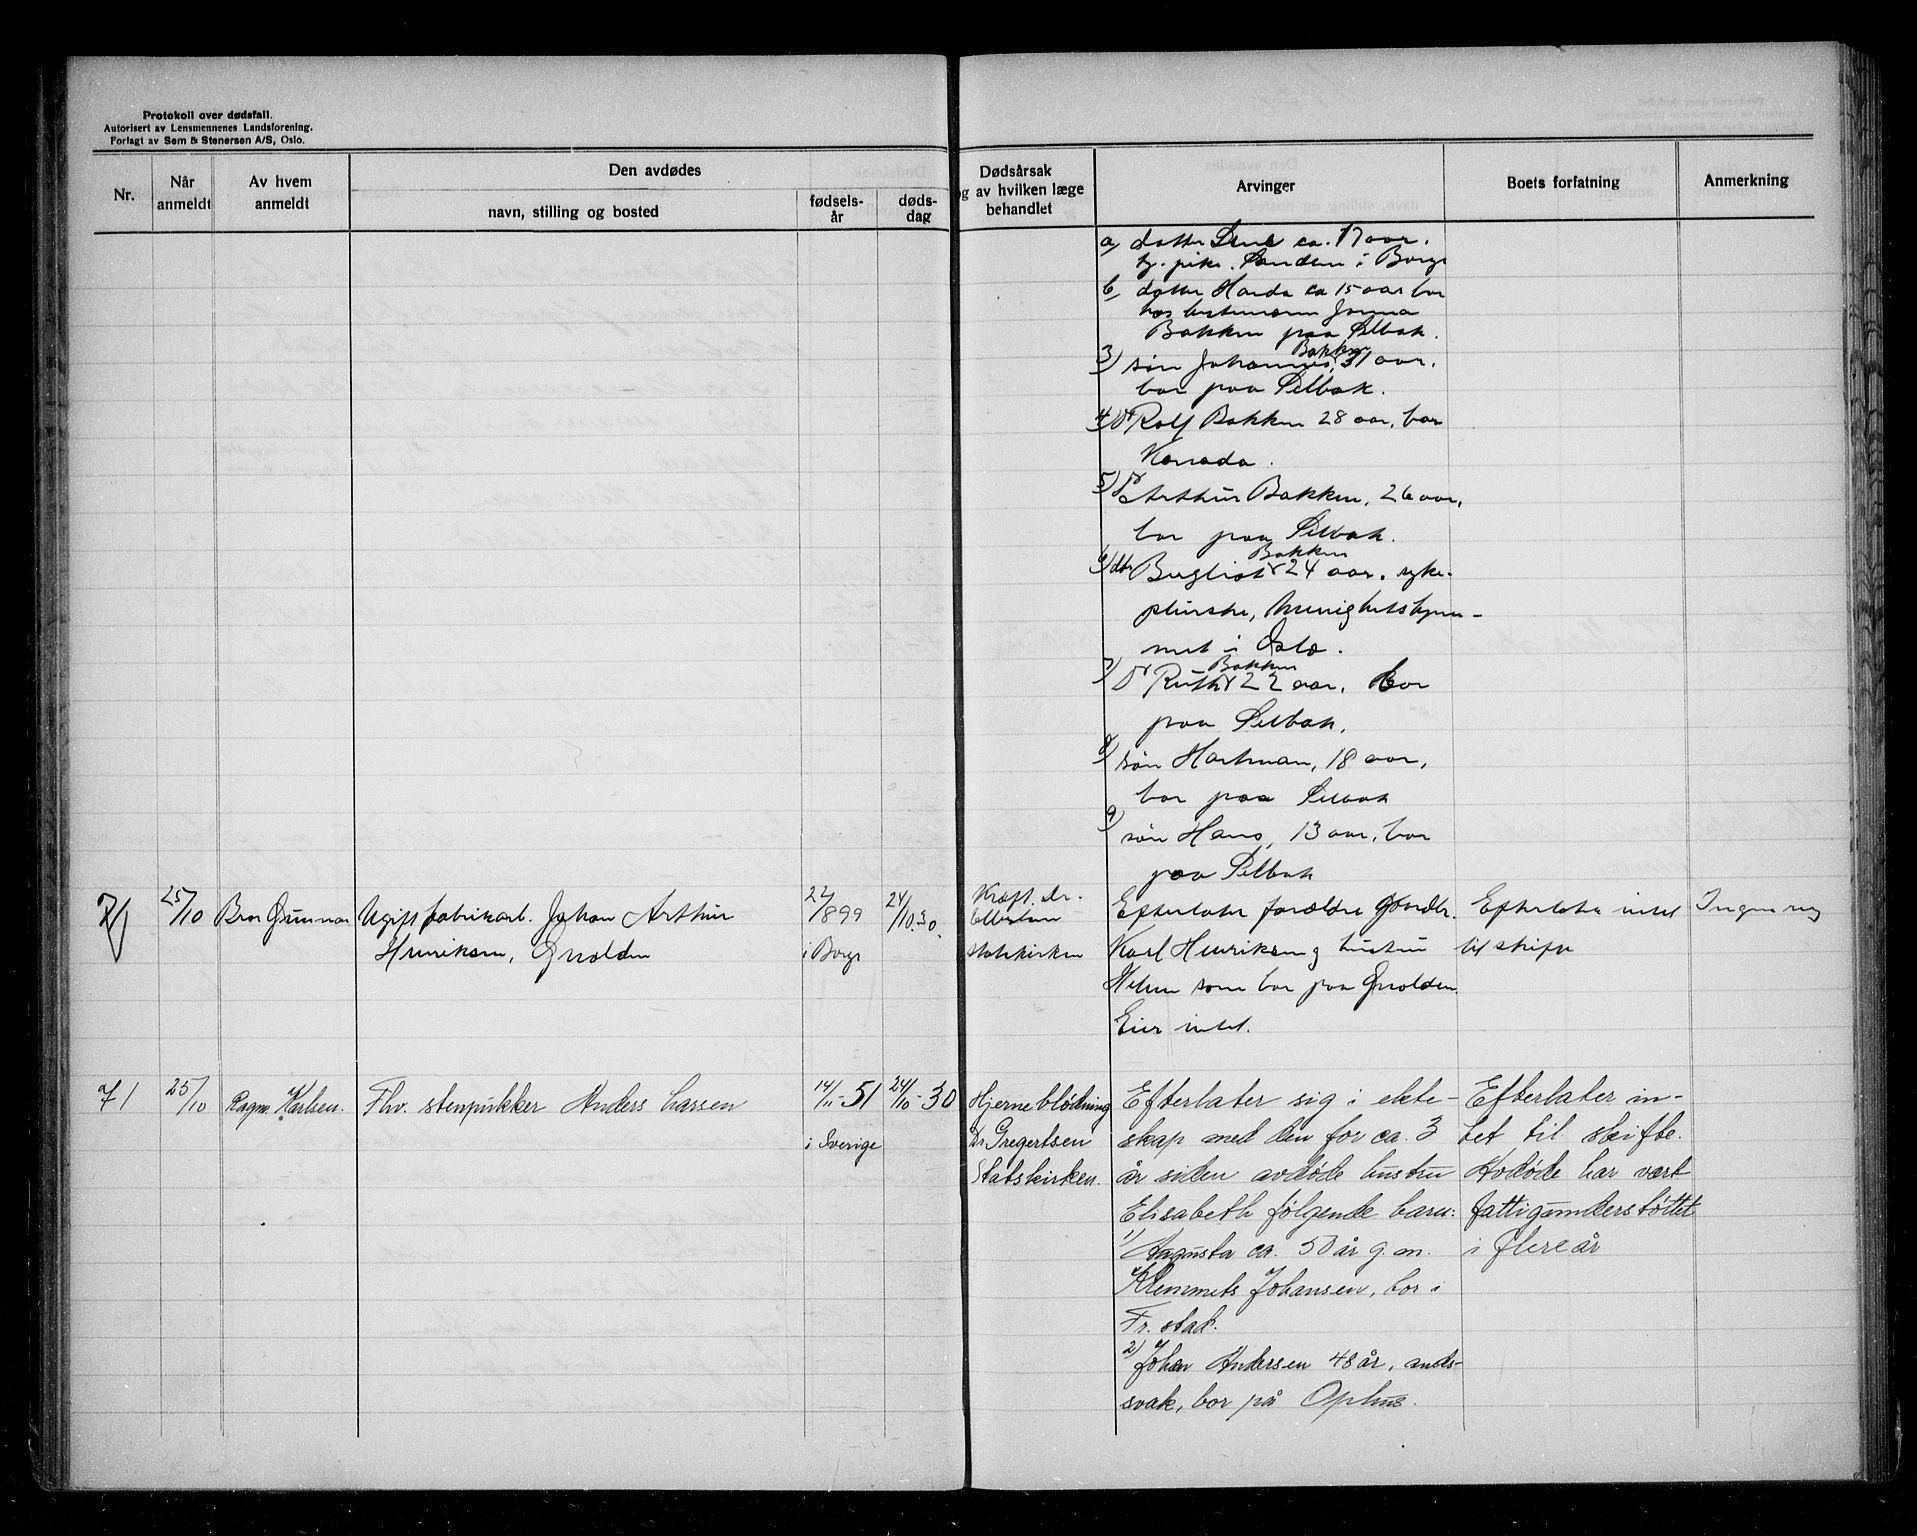 Protokoll over dødsfall.
Autorisert av Lensmennenes Landsforening.
Forlagt av Sem & Stenersen A/S, Oslo.
Nr.
Når anmeldt
Av hvem anmeldt
Den avdødes
navn, stilling og bosted
fødsels-år
døds-dag
Dødsårsak
og av hvilken læge
behandlet
Arvinger
Boets forfatning
Anmerkning
a) datter ca. 17 aar.
tj. pike i Borge
b) datter ca 15 aar bor
hos
Bakken paa Selbak.
3) søn Johannes Bakken, 31 aar,
bor paa Selbak.
4) Rolf Bakken 28 aar, bor
Kanada.
5) Arthur Bakken, 26 aar,
bor paa Selbak.
6) dtr Bergliot Bakken 24 aar, syke-
pleierske, Menighetshjem-
met i Oslo.
7) Ruth Bakken 22 aar, bor
paa Selbak,
8) søn Hartman, 18 aar,
bor paa Selbak
9) søn Hans, 13 aar, bor
paa Selbak
25/10 Bror Gunnar
Ugift fabrikarb. Johan Arthur
Henriksen,
22/ 899
i Borge
24/10.30.
Kræft. Dr.
Statskirken
Efterlater forældre
Karl Henriksen og hustru
som bor paa
Eier intet.
Efterlater intet
til skifte
Ingen
71
25/10
Ragnv. Karlsen.
Fhv. stenpukker Anders Larsen
14/11-51
i Sverige
24/10-30
Hjerneblødning
Dr. Gregertsen
Statskirken.
Efterlater sig i ekte-
skap med den for ca. 3
år siden avdøde hustru
Elisabeth følgende barn:
1) Augusta ca. 50 år g.m.
Klemmets Johansen, bor i
Fr.stad.
2) Johan Andersen 48 år, ånds-
svak, bor på Ophus.
Efterlater in-
tet til skifte.
Avdøde har vært
fattigunderstøttet
i flere år